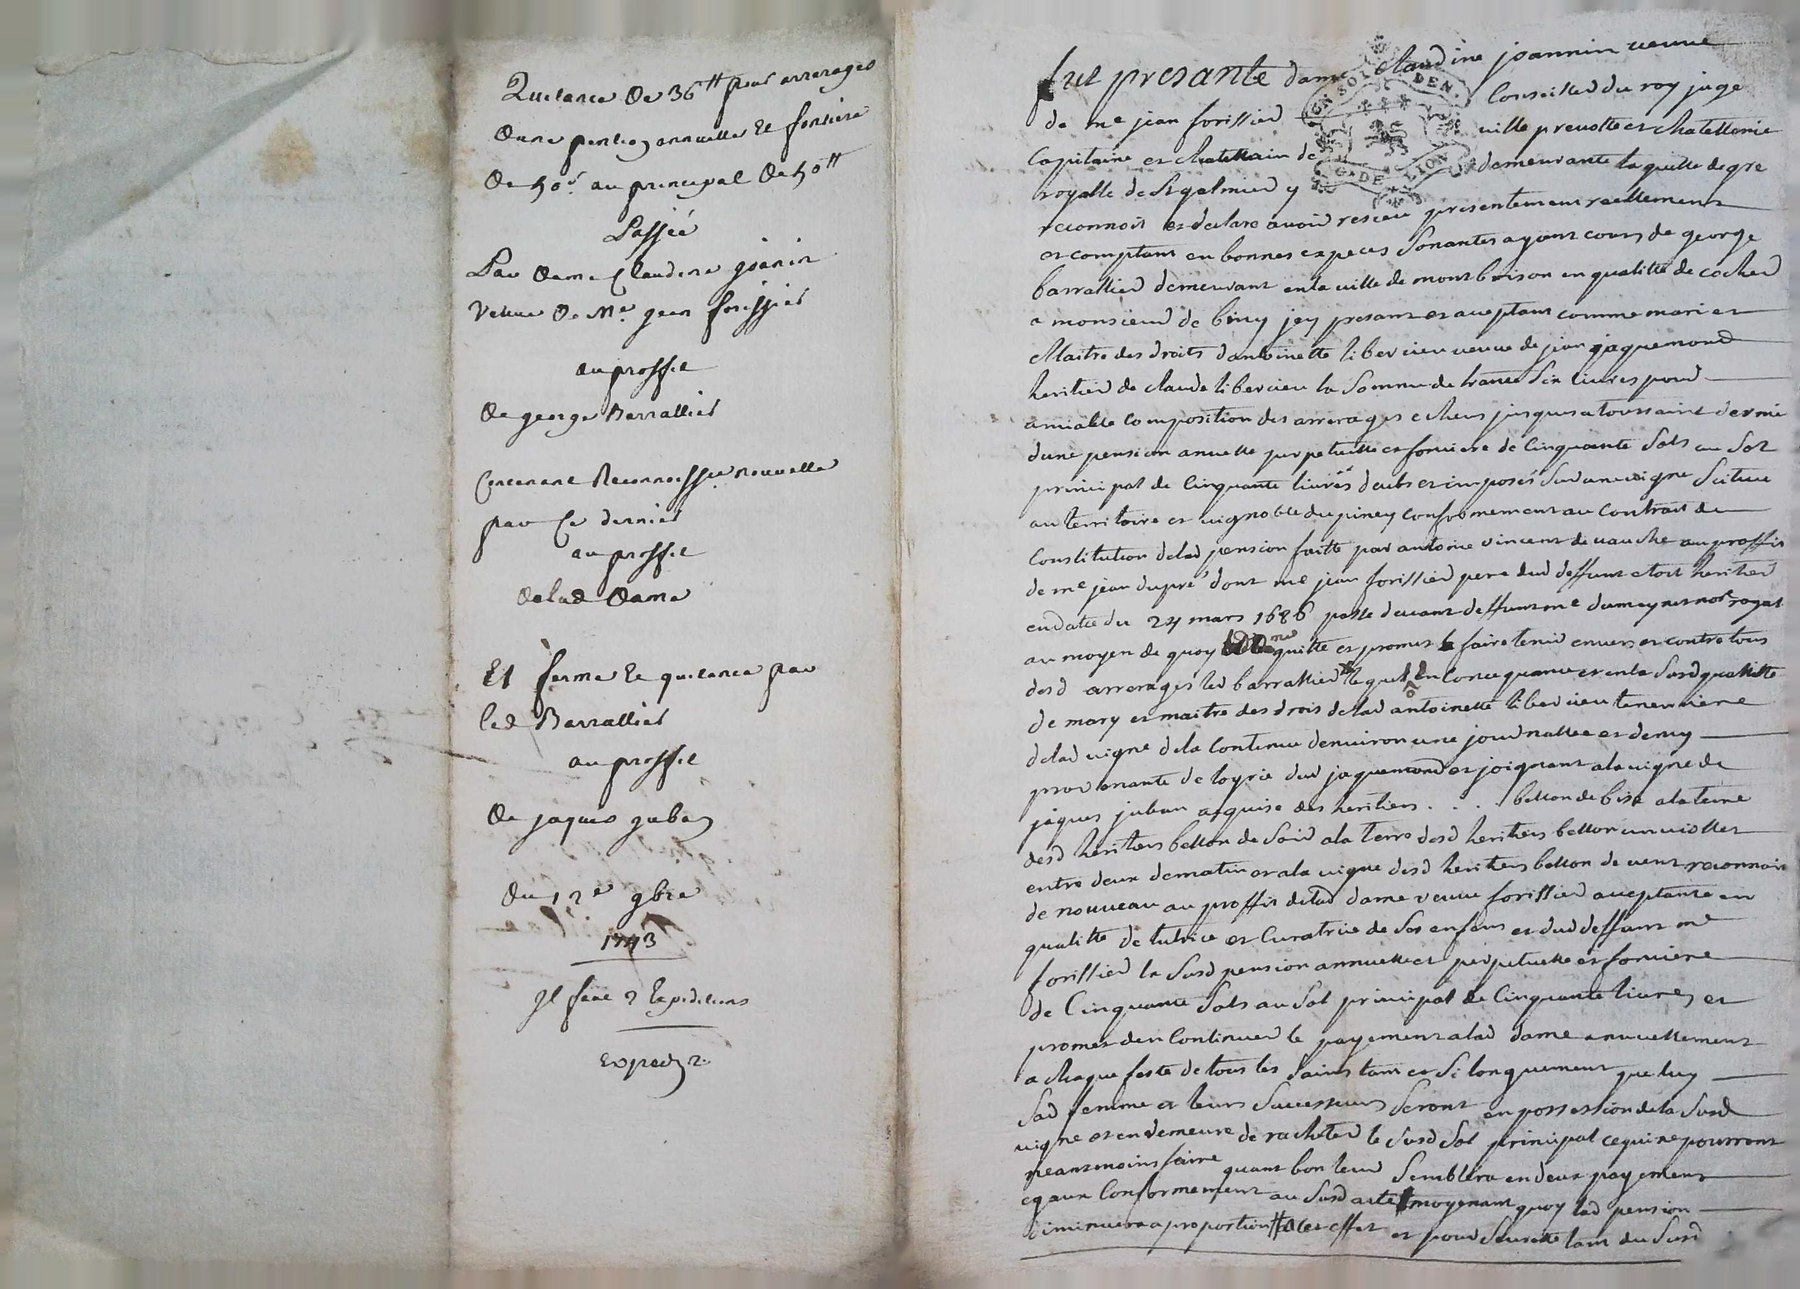 Quitance De 36# pour arrerages
Dune pention annuelle Et fonsiere
De 50s au principal De 50#
Passée
Par Dame Claudine joanin
Vefue De Me jean forissier
au proffit
De george Barrallier
Contenant Reconnoissce nouvelle
par Ce dernier
au proffit
De lad Dame
Et ferme Et quitance par
led Barrallier
au proffit
De jaques juban
Du 12e 9bre
1743
Il faut 2 Expeditions
Exped 2
fut presante dame Claudine joannin veuve
de me jean forissier Conseiller du roy juge
Capitaine et chatelain de ville prevotte et chatellenie
royalle de st galmier y demeurante laquelle de gre
reconnois et declare avoir receu presentement reellement
et comptant en bonnes especes Sonantes ayant cours de george
barrallier demeurant en la ville de montbrison en qualitte de cocher
a monsieur de cury jcy presant et aceptant comme mari et
Maitre des droits dantoinette libercieu veuve de jean jaquemond
heritier de claude libercieu la Somme de trante Six livres pour
amiable Composition des arrerages echeus jusques a toussaint dernie
dune pension anuelle perpetuelle et fonciere de Cinquante Sols au Sol
principal de Cinquante livres deubs et imposés Sur une vigne Scituee
au territoire et vignoble du piney conformement au Contrait de
Constitution de lad pension faitte par antoine vincent de vauche au proffit
de me jean dupré dont me jean forissier pere dud deffunt etoit heritier
en datte du 24 mars 1686 passe devant deffunt me dumeynet nore royal
au moyen de quoy lad Dme quitte et promet faire tenir envers et contre tous
desd arrerages led barrallier lequel en Consequance et en la Susd qualitte
de mary et maitre des drois de lad antoinette libercieu tenemtiere
de lad vigne de la Contenue denviron une journallee et demy
provenante de loyrie dud jaquemond et joignant a la vigne de
jaques juban acquise des heritiers . . . . bellon de bise a la terre
desd heritiers bellon de Soir a la terre desd heritiers bellon un viollet
entre deux de matin et a la vigne desd heritiers bellon de vent reconnois
de nouveau au proffit de lad dame veuve forissier aceptante en
qualitte de tutrice et Curatrice de Ses enfans et dud deffunt me
forissier la Susd pension annuelle et perpetuelle et fonciere
de Cinquante Sols au Sol principal de Cinquante livres et
promet den Continuer le payement a lad dame annuellement
a chaque feste de tous les Saints tant et Si longuement que luy
Sad femme et leurs Successeurs Seront en possession de la Susd
vigne et en demeure de racheter le Susd Sol principal ce quine pourront
neantmoins faire quant bon leur Semblera en deux payement
egaux Conformement au Susd acte moyenant quoy lad pension
diminuera a proportion a cet effet et pour Seurette tant du Susd
GN SOL DEN
G. DE LION